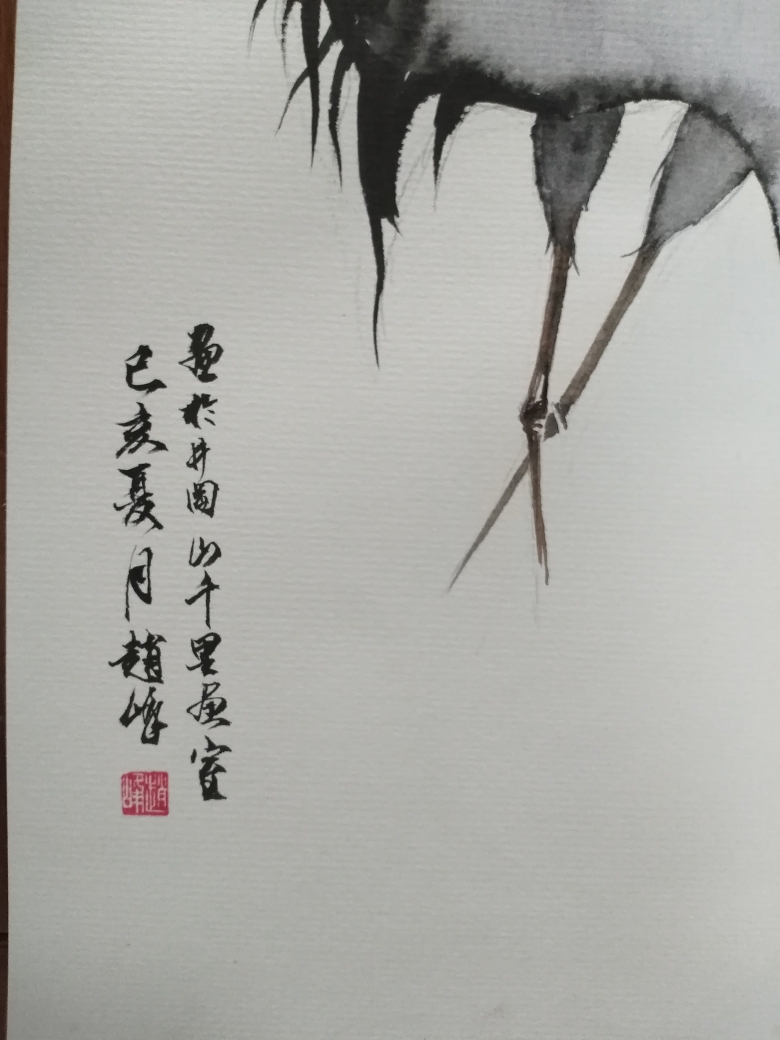 畫於井岡山千里畫室
己亥夏月趙峰
趙峰